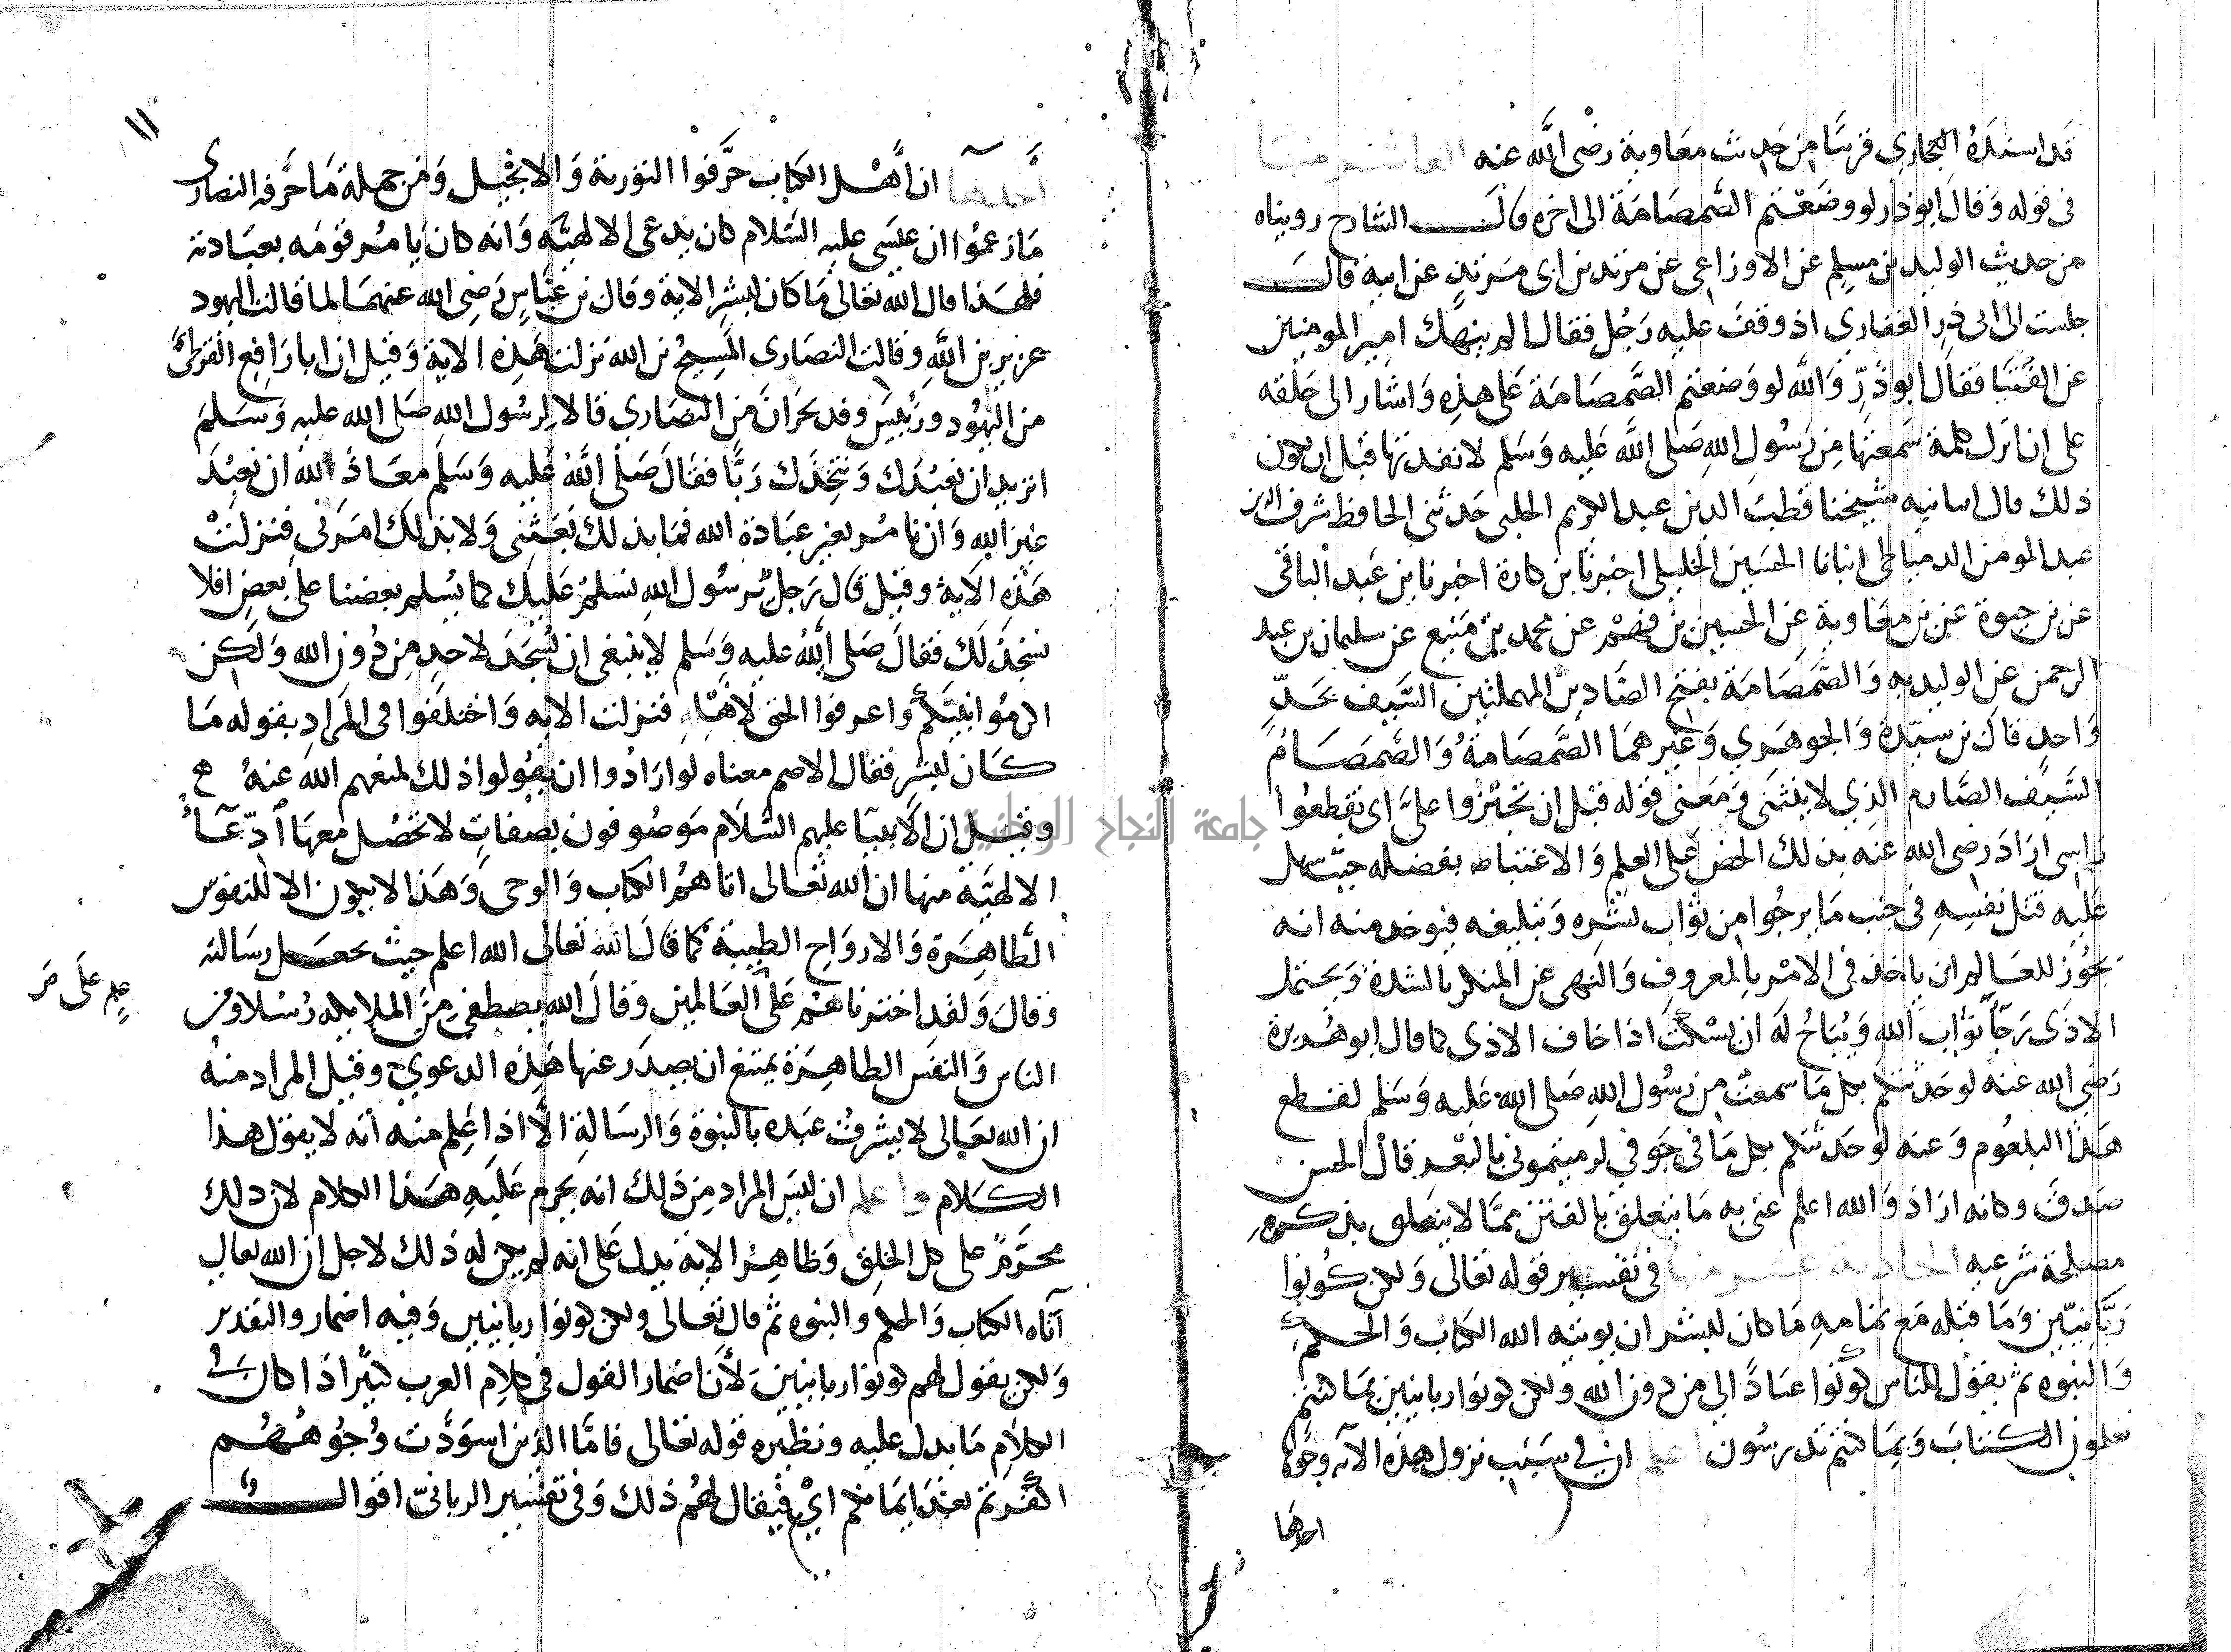 قد اسنده البخاري قريبا من حديث معاوية رضى الله عنه العاشر منها
فى قوله وقال ابوذر لو وضعتم الصمصامة الى اخره قال الشارح رويناه
من حديث الوليد بن مسلم عن الاوزاعى عن مرثد بن ابى مرثد عن ابيه قال
جلست الى ابى ذر الغفارى اذ وقف عليه رجل فقال الم ينهك امير المومنين
عن الفتيا فقال ابوذر والله لو وضعتم الصمصامة على هذه واشار الى حلقه
على ان اترك كلمة سمعتها من رسول الله صلى الله عليه وسلم لانفدتها قبل ان يكون
ذلك قال انبانيه شيخنا قطب الدين عبد الكريم الحلبى حدثنى الحافظ شرف الدين
عبد المومن الدمياطى انبانا الحسين الخليلى اخبرنا بن كارة اخبرنا بن عبد الباقى
عن بن حيوة عن بن معاوية عن الحسين بن فهم عن محمد بن منيع عن سليمان بن عبد
الرحمن عن الوليد به والصمصامة بفتح الصادين المهملتين السيف بحد
واحد قال بن سيدة والجوهرى وغيرهما الصمصامة والصمصام
السيف الصارم الذى لا ينثنى ومعنى قوله قبل ان تجيزوا على اى تقطعوا
راسى اراد رضى الله عنه بذلك الحض على العلم والاغتباط بفضله حيث سهل
عليه قتل نفسه فى جنب ما يرجوا من ثواب نشره وتبليغه فيوخد منه انه
يجوز للعالم ان ياخذ فى الامر بالمعروف والنهى عن المنكر بالشدة ويحتمل
الاذى رجآ ثواب الله ويباح له ان يسكت اذا خاف الاذى كما قال ابو هريرة
رضى الله عنه لو حدثتكم بكل ما سمعت من رسول الله صلى الله عليه وسلم لقطع
هذا البلعوم وعنه لو حدثتكم بكل ما فى جوفى لرميتمونى بالبعر قال الحسن
صدق وكانه اراد والله اعلم عنى به ما يتعلق بالفتن مما لا يتعلق بذكره
مصلحة شرعيه الحادية عشر منها فى تفسير قوله تعالى ولكن كونوا
ربانيين وما قبله مع تمامه ما كان لبشر ان يوتيه الله الكتاب والحكم
والنبوه ثم يقول للناس كونوا عبادا لى من دون الله ولكن كونوا ربانيين بما كنتم
تعلمون الكتاب وبما كنتم تدرسون اعلم ان فى سبب نزول هذه الآيه وجوها
احدها
١١
احدها ان اهل الكتاب حرفوا التورية والانجيل ومن جملة ما حرفه النصارى
ما زعموا ان عيسى عليه السلام كان يدعى الالهيه وانه كان يامر قومه بعبادته
فلهذا قال الله تعالى ما كان لبشر الاية وقال بن عباس رضى الله عنهما لما قالت اليهود
عزير بن الله وقالت النصارى المسيح بن الله نزلت هذه الاية وقيل ان ابا رافع القرظى
من اليهود ورئيس وفد نجران من النصارى قالا لرسول الله صلى الله عليه وسلم
اتريد ان نعبدك ونتخذك ربا فقال صلى الله عليه وسلم معاذ الله ان نعبد
غير الله وان نامر بغير عبادة الله فما بذلك بعثنى ولا بذلك امرنى فنزلت
هذه الاية وقيل قال رجل يرسول الله نسلم عليك كما يسلم بعضنا على بعض افلا
نسجد لك فقال صلى الله عليه وسلم لا ينبغى ان يسجد لاحد من دون الله ولكن
اكرموا نبيكم واعرفوا الحق لاهله فنزلت الايه واختلفوا فى المراد بقوله ما
كان لبشر فقال الاصم معناه لو ارادوا ان يقولوا ذلك لمنعهم الله عنه
وقيل ان الانبيا عليهم السلام موصوفون بصفات لا تحصل معها ادعآء
الالهية منها ان الله تعالى اتاهم الكتاب والوحى وهذا لا يكون الا للنفوس
الطاهرة والارواح الطيبة كما قال الله تعالى الله اعلم حيث يجعل رسالته
وقال ولقد اخترناهم على علم على العالمين وقال الله يصطفى من الملايكه رسلا ومن
الناس والنفس الطاهرة يمتنع ان يصدر عنها هذه الدعوى وقيل المراد منه
ان الله تعالى لا يشرف عبده بالنبوة والرسالة الا اذا علم منه انه لا يقول هذا
الكلام واعلم ان ليس المراد من ذلك انه يحرم عليه هذا الكلام لان ذلك
محرم على كل الخلق وظاهر الاية يدل على انه لم يكن له ذلك لاجل ان الله تعالى
آتاه الكتاب والحكم والنبوه ثم قال تعالى ولكن كونوا ربانيين وفيه اضمار والتقدير
ولكن يقول لهم كونوا ربانيين لان اضمار القول فى كلام العرب كثير اذا كان فى
الكلام ما يدل عليه ونظيره قوله تعالى فاما الذين اسودت وجوههم
اكفرتم بعد ايمانكم اى فيقال لهم ذلك وفى تفسير الربانى اقوال
جامعة النجاح الوطنية